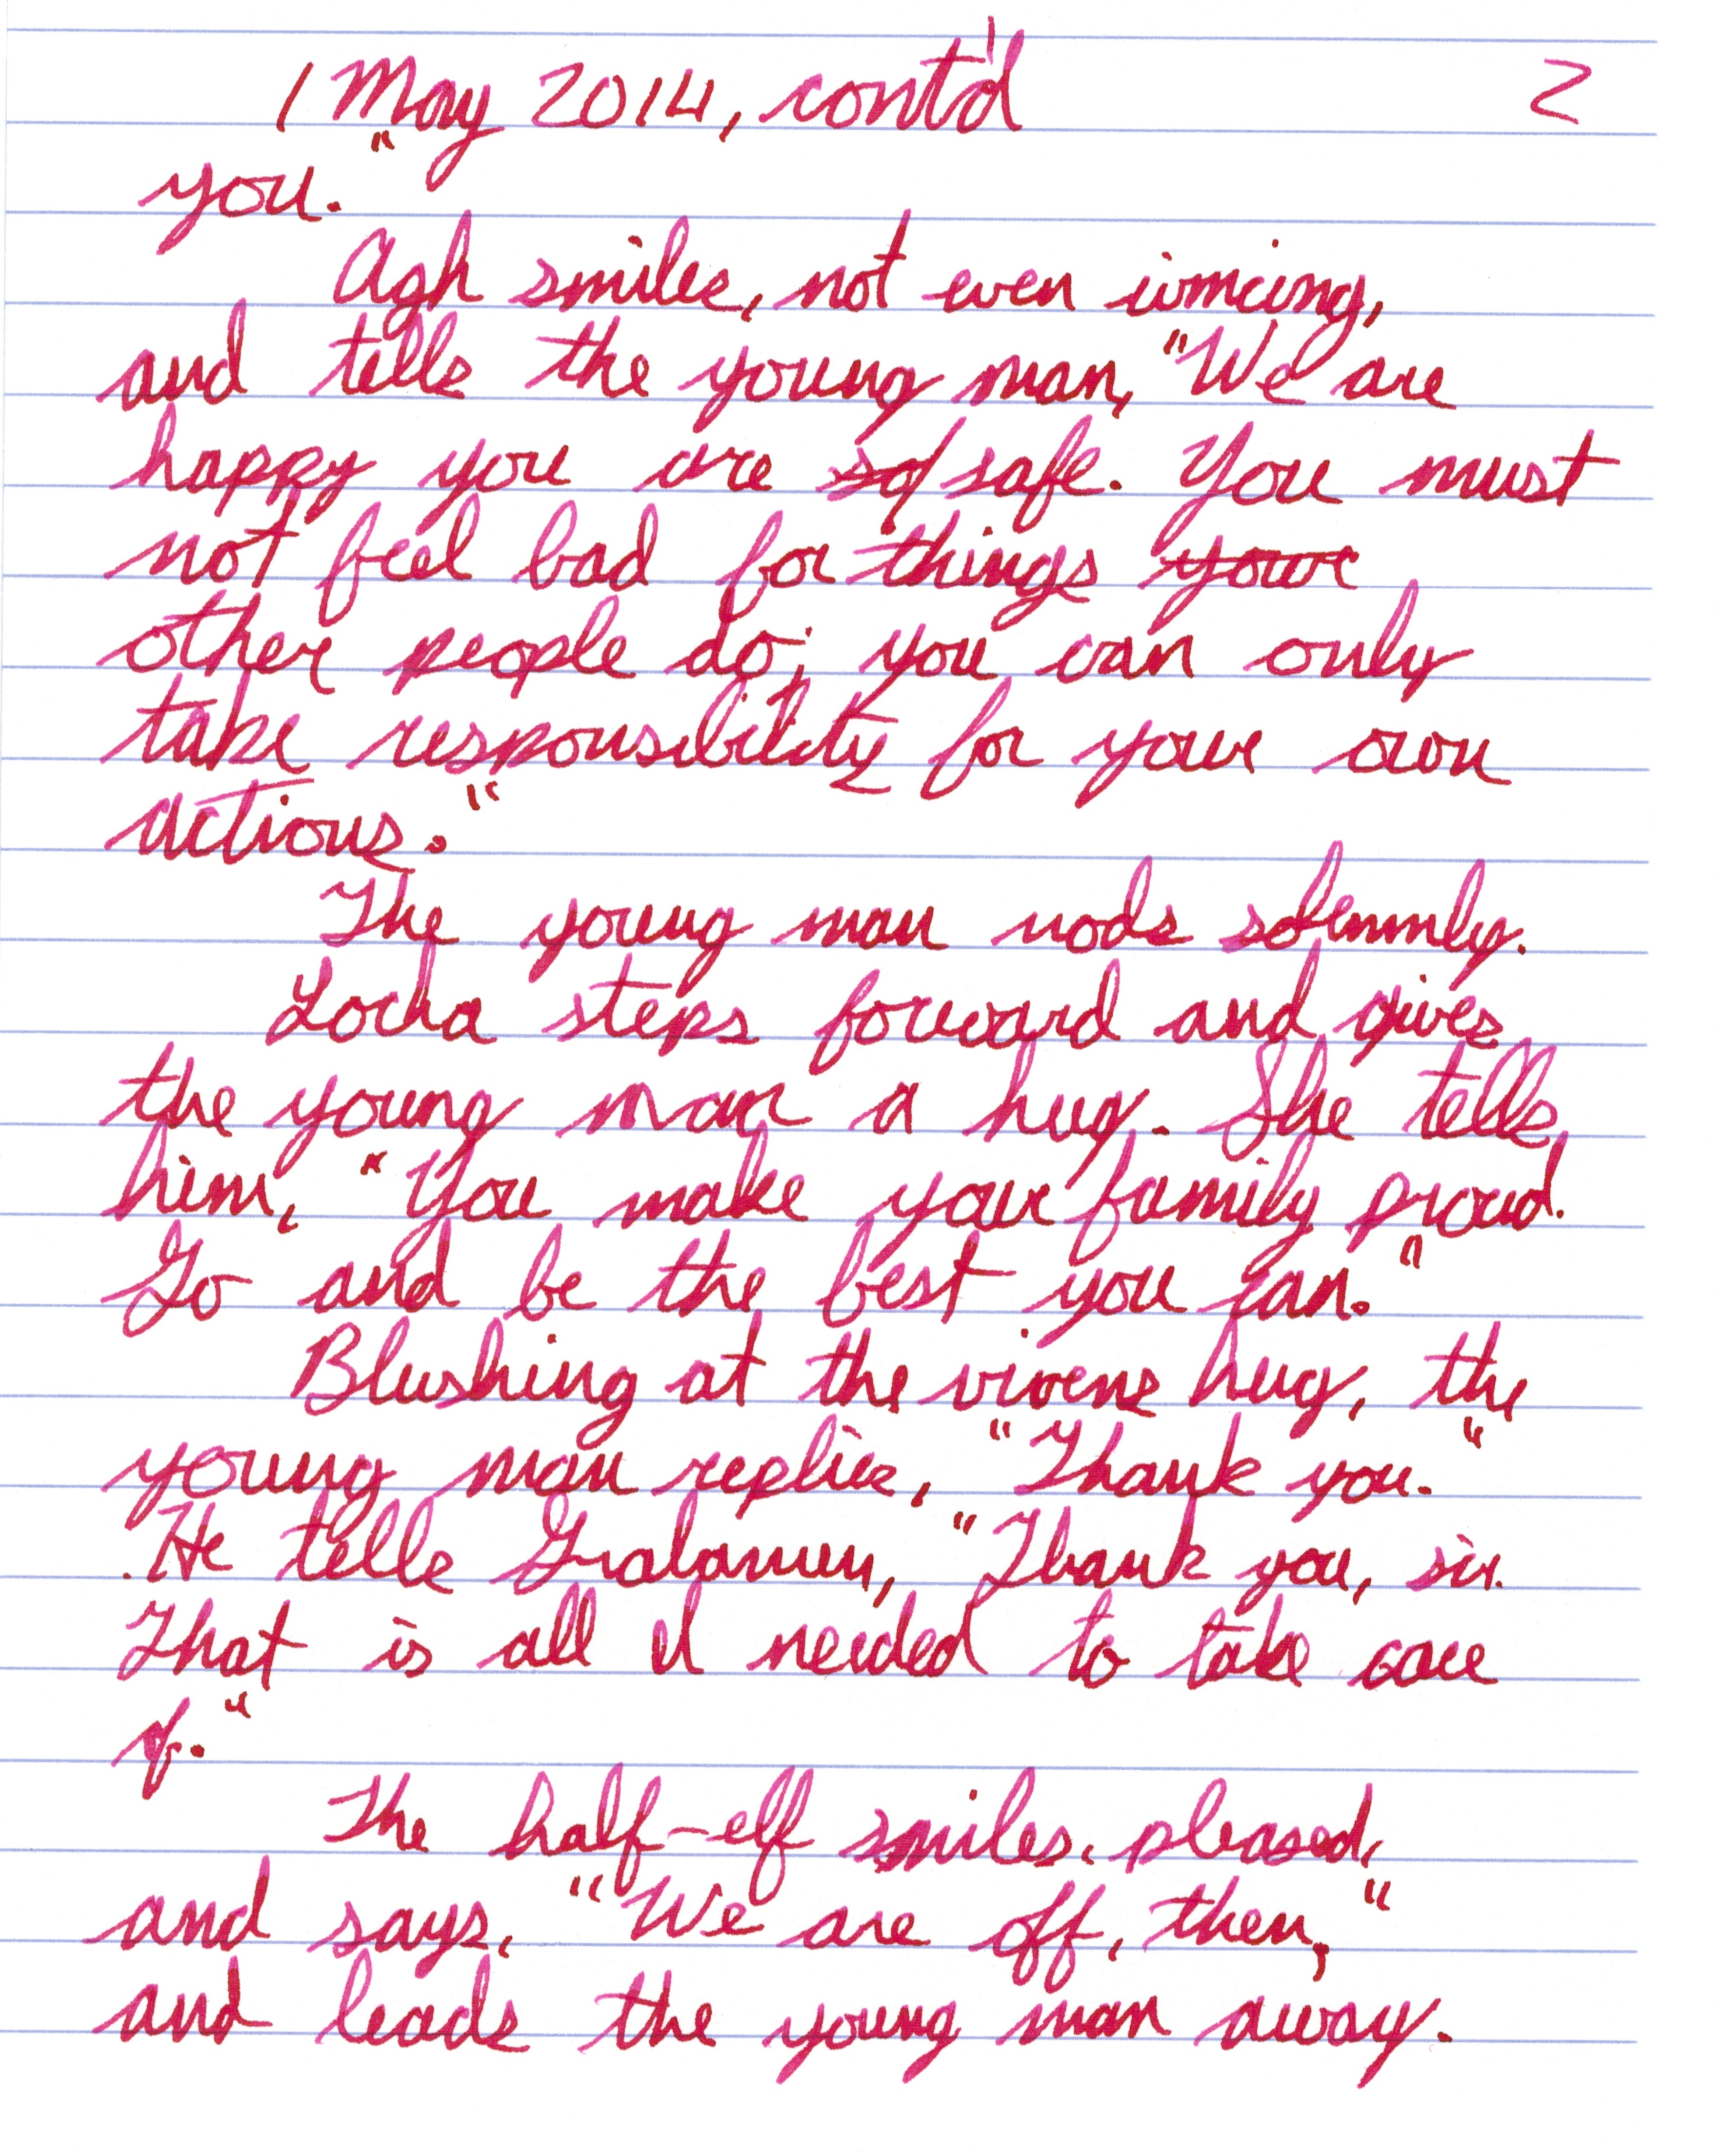 1 May 2014, cont'd 2
you."
Agh smiles, not even wincing,
and tells the young man, "We are
happy you are so safe. You must
not feel bad for things your
other people do; you can only
take responsibility for your own
actions."
The young man nods solemnly.
Locha steps forward and gives
the young man a hug. She tells
him, "You make your family proud.
Go and be the best you can."
Blushing at the hug, the
young man replies, "Thank you."
He tells Gralamin, "Thank you, sir.
That is all I needed to take care
of."
The half-elf smiles, pleased,
and says, "We are off, then,"
and leads the young man away.